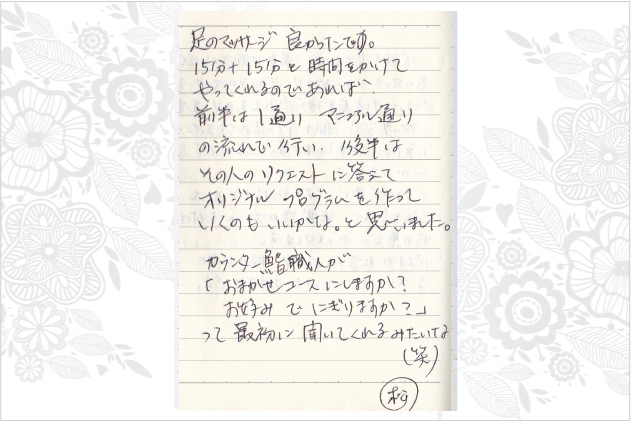 足のマッサージ 良かったです。
15分+15分と時間をかけて
やってくれるのであれば、
前半は1通り マニュアル通り
の流れで行い、後半は
その人のリクエストに答えて
オリジナルプログラムを作って
いくのもいいかな。と思いました。
カウンター鮨職人が
「おまかせコースにしますか?
お好みでにぎりますか?」
って最初に聞いてくれるみたいな
(笑)